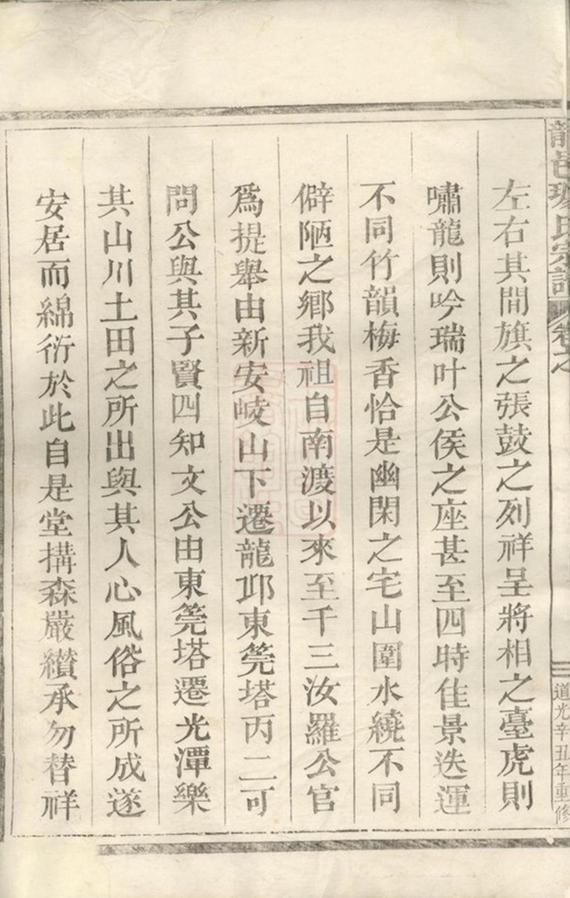 龍邑 氏宗譜 卷之
道光辛丑年重修
左右其間旗之張鼓之列祥呈將相之臺虎則
嘯龍則吟瑞叶公侯之座甚至四時佳景迭運
不同竹韻梅香恰是幽閑之宅山圍水繞不同
僻陋之鄉我祖自南渡以來至千三汝羅公官
爲提舉由新安岐山下遷龍邛東筦塔丙二可
問公與其子賢四知文公由東筦塔遷光潭樂
其山川土田之所出與其人心風俗之所成遂
安居而綿衍於此自是堂搆森嚴纘承勿替祥